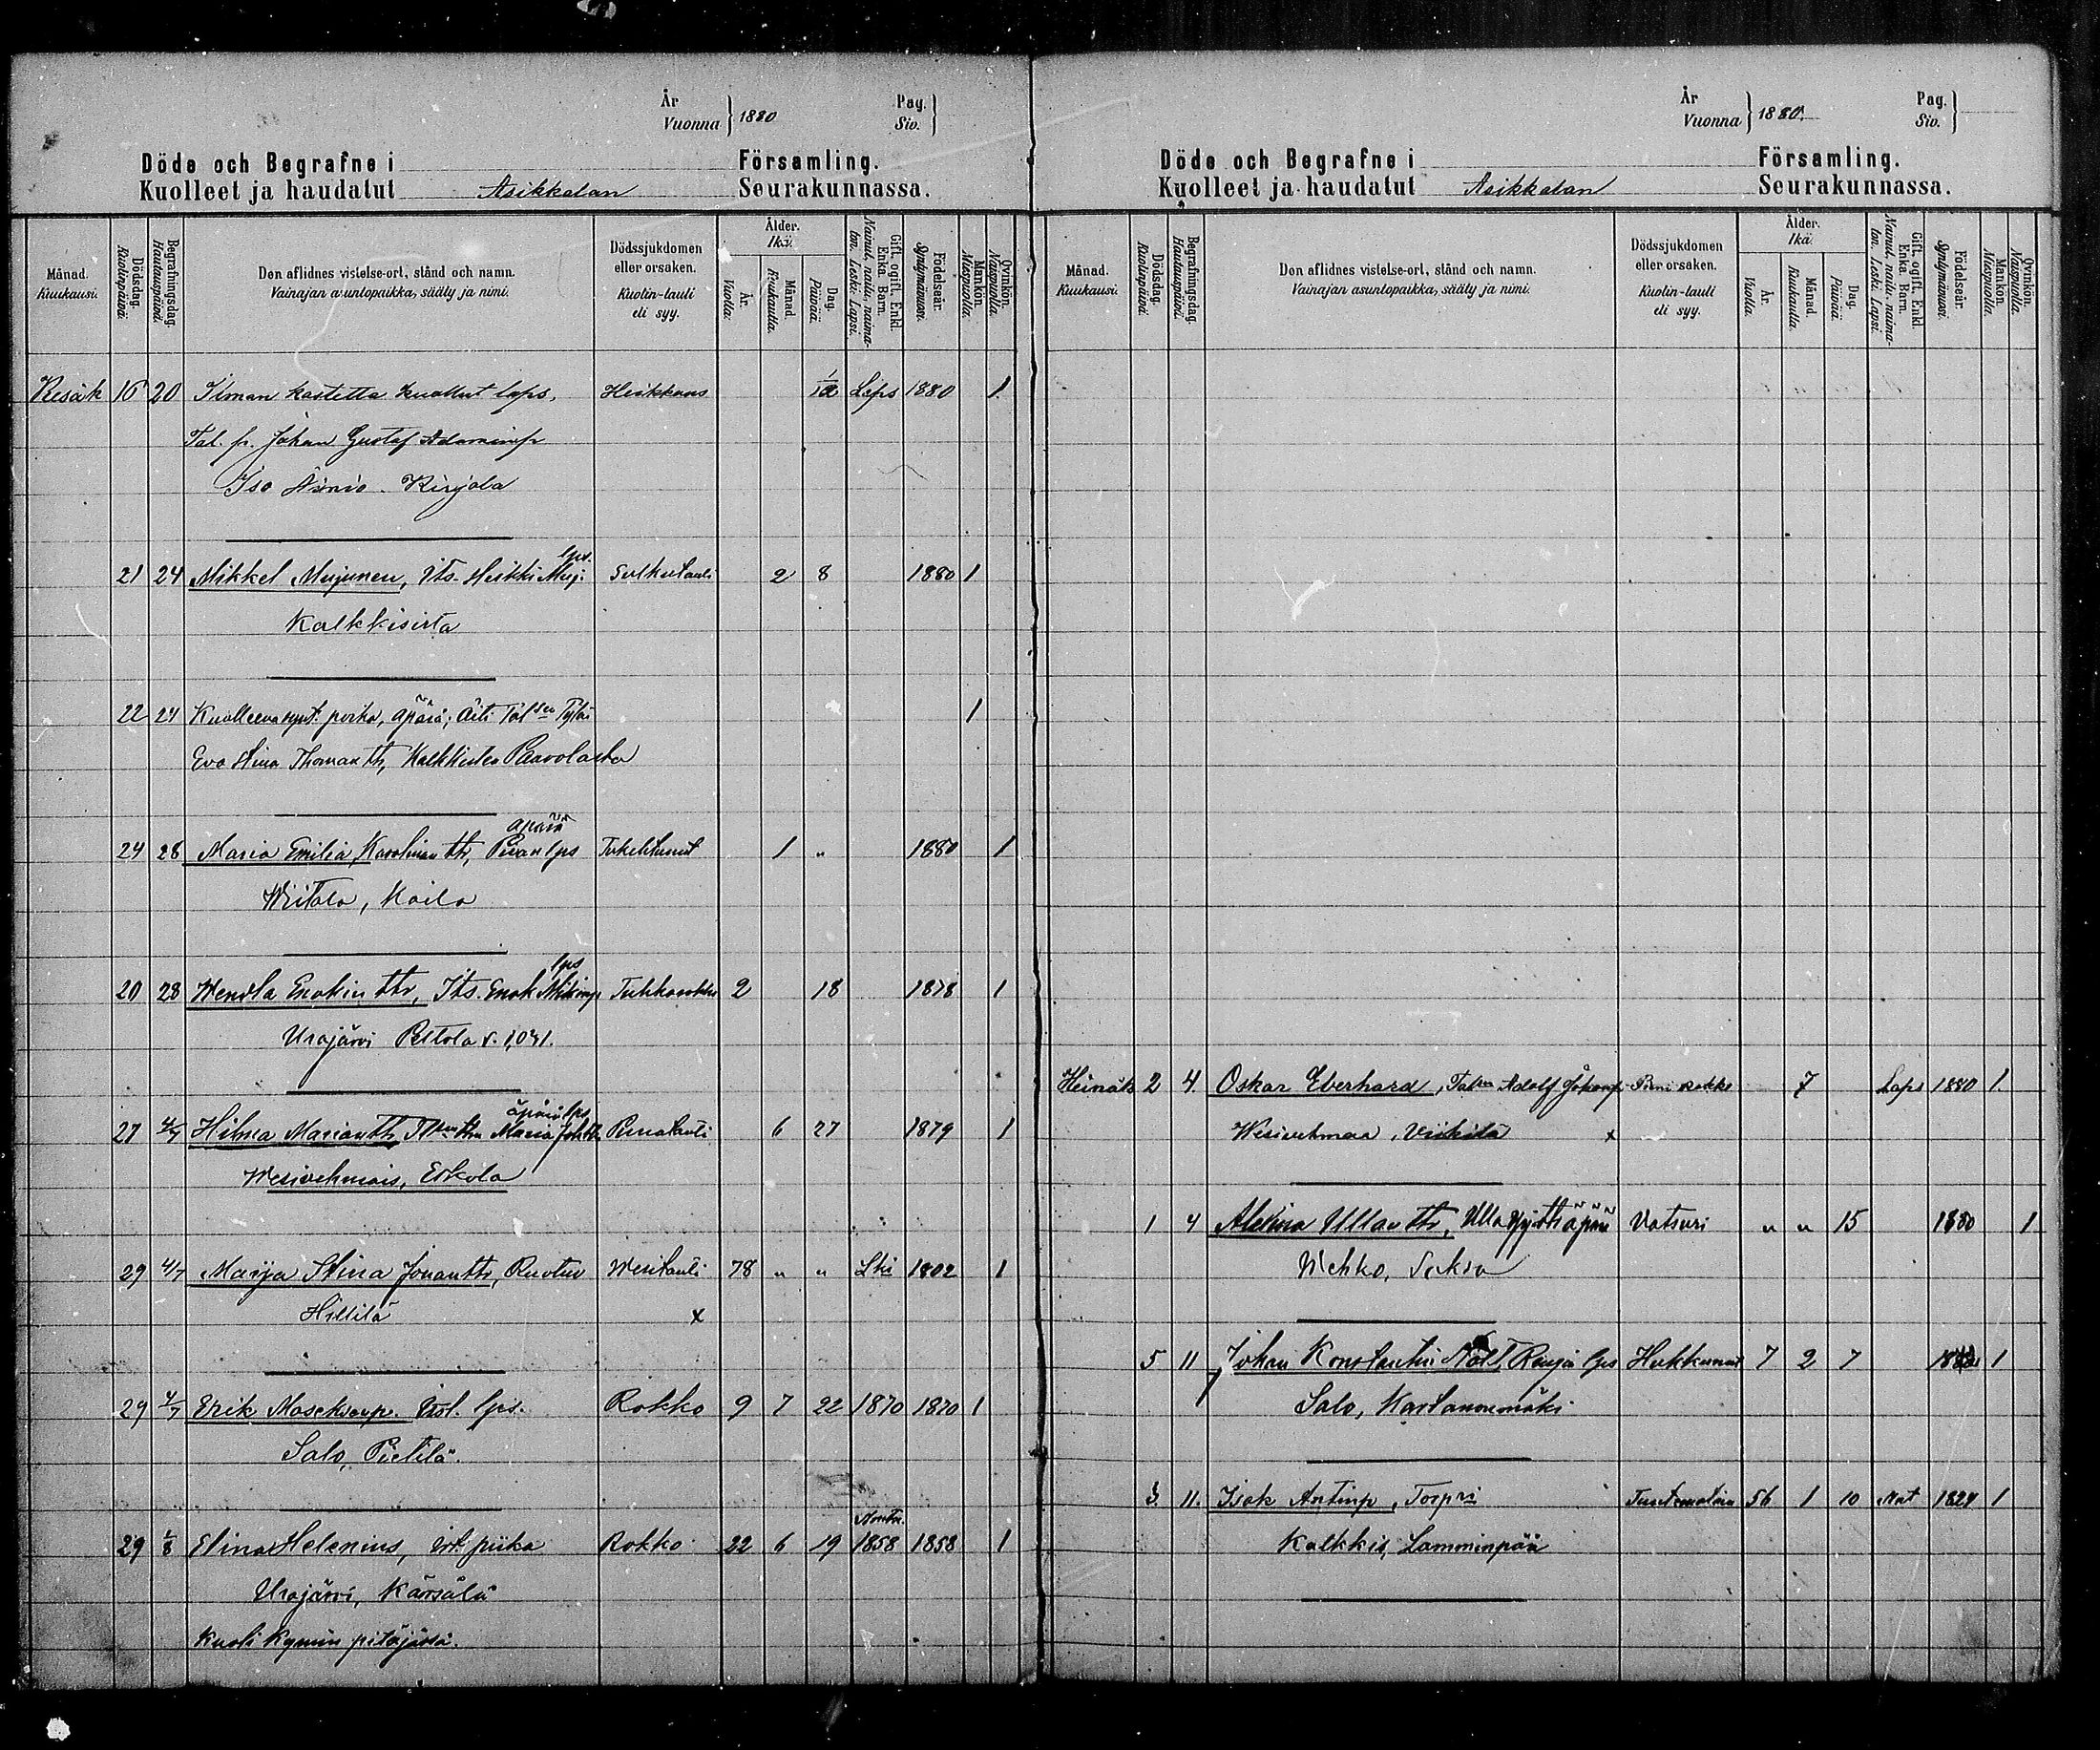 År
Vuonna } 1880
Pag.
Siv. }
Döde och Begrafne i Församling.
Kuolleet ja haudatut Asikkalan Seurakunnassa.
Månad. Kuukausi.
Dödsdag. Kuolinpäivä.
Begrafningsdag. Hautauspäivä.
Den aflidnes vistelse-ort, stånd och namn.
Vainajan asuntopaikka, sääty ja nimi.
Dödssjukdomen eller orsaken.
Kuolin-tauti eli syy.
Ålder. Ikä.
År. Vuotta.
Månad. Kuukautta.
Dag. Päivää.
Gift, ogift, Enkl. Enka. Barn.
Nainut, naitu, naimaton. Leski. Lapsi.
Födelseår. Syntymävuosi.
Mankön. Miespuolia.
Qvinkön. Naispuolia.
Kesäk 16 20 Ilman kastetta kuollut laps, Heikkous Laps 1880 1
Tal. p. Johan Gustaf Adaminp
Iso Äiniö. Kurjala
lps.
21 24 Mikkel Mujunen, Its. Heikki Muj. Sulkutauti 2 8 1880 1
Kalkkisista
22 24 Kuolleena synt. poika, äpärä; äiti Tal sen Tytär 1
Eva Stina Thomantr, Kalkkisten Paavolasta
äpärä
24 28 Maria Emilia Karolinan tr, Piian lps Tukehtunut 1 " 1880 1
Wiitala, Kaila
lps
20 28 Wendla Enokin tr, Its. Enok Mikinp Tuhkarokko 2 18 1878 1
Urajärvi
äpärä lps
27 4/7 Hilma Mariantr Maria Joh tr Rintatauti 6 27 1879 1
Wesivehmais, Erkola
29 4/7 Marja Stina Johantr, Ruotuv Wesitauti 78 " " Ski 1802 1
Hillilä x
29 4/7 Erik Maschianp. Irst. lps. Rokko 9 7 22 1870 1870 1
Salo, Pietilä.
29 1/8 Elina Helenius, irt. piika Rokko 22 6 19 1858 1858 1
Urajärvi, Kärsälä
Kuoli Kymin pitäjässä.
År
Vuonna } 1880
Pag.
Siv. }
Döde och Begrafne i Församling.
Kuolleet ja haudatut Asikkalan Seurakunnassa.
Månad. Kuukausi.
Dödsdag. Kuolinpäivä.
Begrafningsdag. Hautauspäivä.
Den aflidnes vistelse-ort, stånd och namn.
Vainajan asuntopaikka, sääty ja nimi.
Dödssjukdomen eller orsaken.
Kuolin-tauti eli syy.
Ålder. Ikä.
År. Vuotta.
Månad. Kuukautta.
Dag. Päivää.
Gift, ogift, Enkl. Enka. Barn.
Nainut, naitu, naimaton. Leski. Lapsi.
Födelseår. Syntymävuosi.
Mankön. Miespuolia.
Qvinkön. Naispuolia.
Heinäk 2 4. Oskar Eberhard, Talsen Adolf Johanp rokko 7 Laps 1880 1.
Wesivehmaa, Viikilä x
1 4 Alviina Ullan tr, Ulla äpärä Vatsuri " " 15 1880 1
Wehko, Seksa
5 11 Johan Konstantin Renjin lps Hukkunut 7 2 7 1
Salo, Kartanonmäki
3. 11. Isak Antinp, Torpri Tuntematoin 56 1 10 Nat 1824 1
Kalkkis, Lamminpää